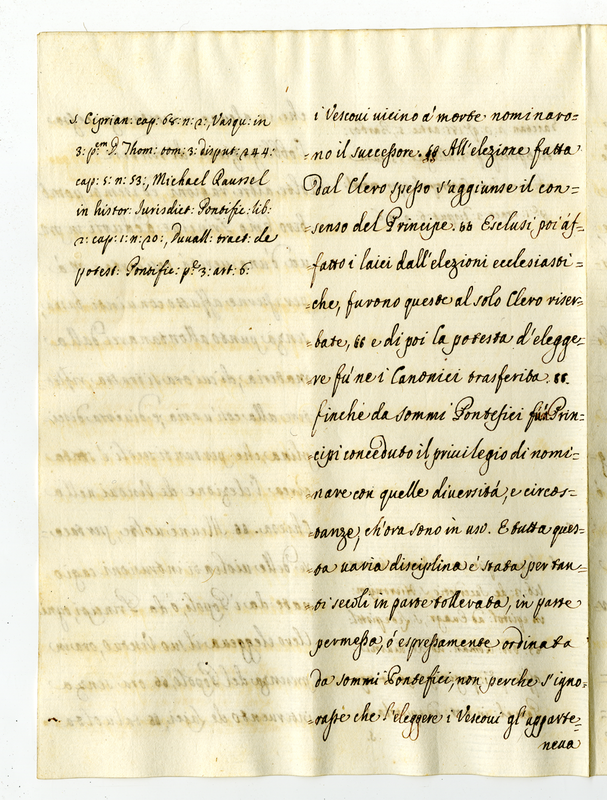 S. Ciprian: cap: 68: n: 2:, Vasqu: in
3: p:em D. Thom: tom: 3: disput: 244:
cap: 5: n: 53:, Michael Raussel
in histor: Jurisdict: Pontific: lib:
2: cap: 1: n: 20:, Duvall: tract: de
potest: Pontific: p:e 3: art: 6:
i Vescovi vicino a' morte nominaro=
=no il successore. 66 All'elezione fatta
Dal Clero spesso s'aggiunse il con=
=senso del Principe. 66 Esclusi poi áf=
=fatto i laici dall'elezioni ecclesiasti=
=che, furono queste al solo Clero riser=
=bate, 66 e di poi la potestà d'elegge=
=re fú ne i Canonici trasferita. 66.
finche da sommi Pontefici fú á Prin=
=cipi conceduto il privilegio di nomi=
=nare con quelle diversitá, e circos=
=tanze, ch'ora sono in uso. E tutta ques=
=ta varia disciplina é stata per tan=
=ti secoli in parte tollerata, in parte
permessa, ó espressamente ordinata
da sommi Pontefici, non perche s'igno=
=rasse che l'eleggere i Vescovi gl'apparte=
neva